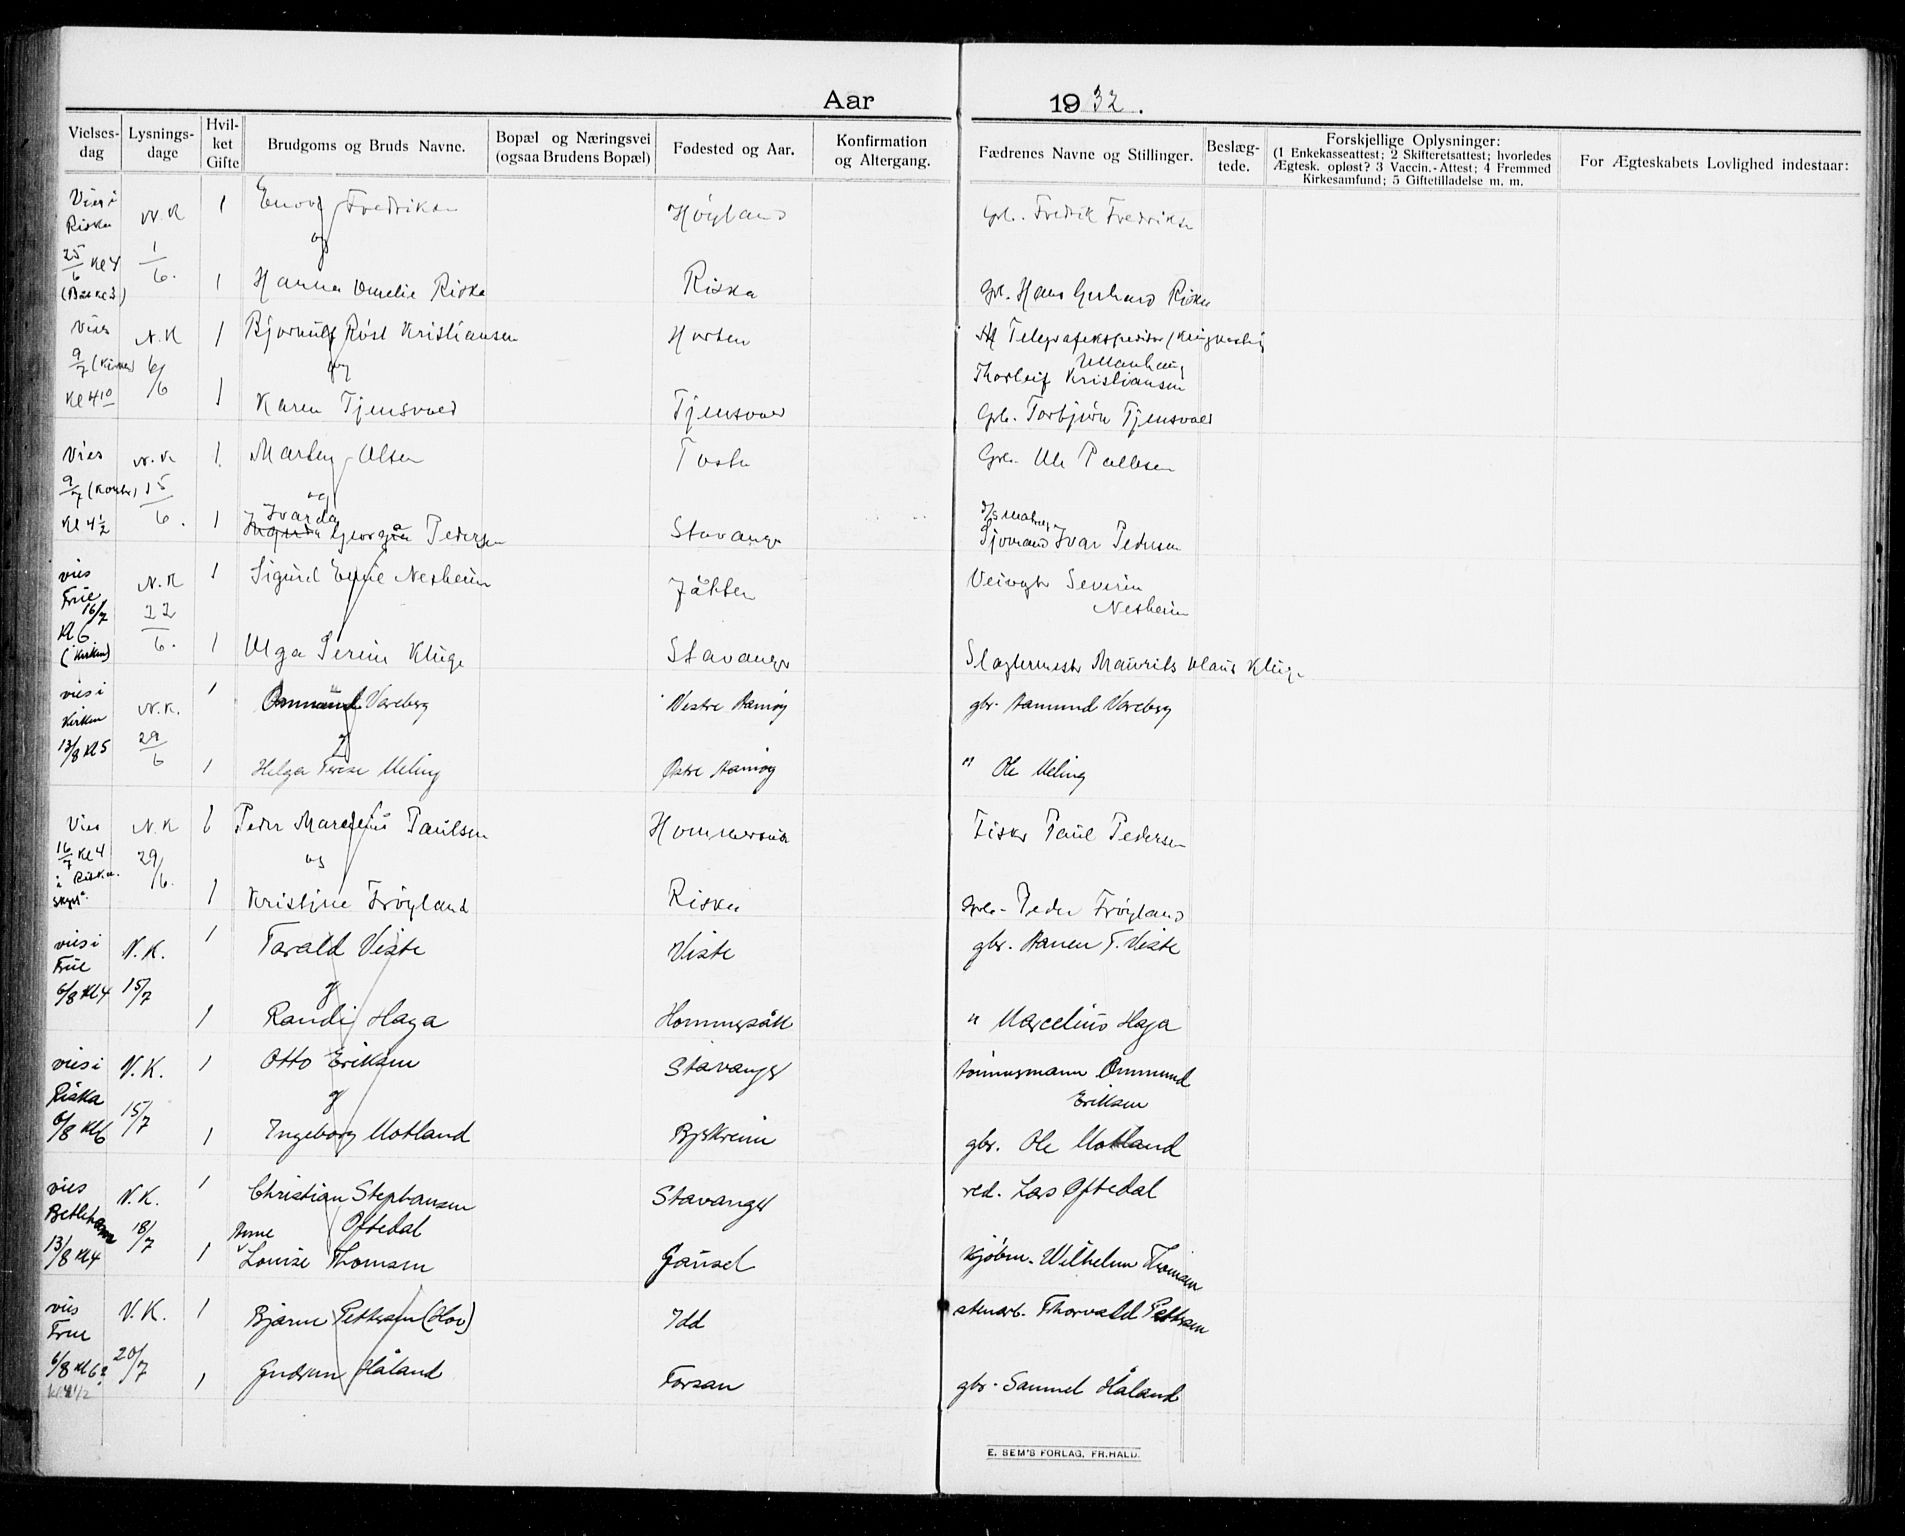 Aar 1932.
Vielses-dag
Lysnings-dage
Hvil-ket Gifte
Brudgoms og Bruds Navne.
Bopæl og Næringsvei (ogsaa Brudens Bopæl)
Fødested og Aar.
Konfirmation og Altergang.
Fædrenes Navne og Stillinger.
Beslæg-tede.
Forskjellige Oplysninger:
(1 Enkekasseattest; 2 Skifteretsattest; hvorledes
Ægtesk. opløst? 3 Vaccin.-Attest; 4 Fremmed
Kirkesamfund; 5 Giftetilladelse m. m.
For Ægteskabets Lovlighed indestaar:
Vies i N.K 1 Fredriksen Høyland Gbr. Fredrik Fredriksen
Riska
og
25/6 Kl 4 1/6.
1 Hanna Amelie Riska Riska Gbr. Hans Gerhard Riska
Vies N.K 1 Bjørnulf Røst Kristiansen Horten
9/7 (Kirken) 6/6 og Ullanhaug
Thorleif Kristiansen
Kl 4 10 1 Karen Tjensvold Tjensvold Gbr. Torbjørn Tjensvold
Vies N.K 1. Olsen Gbr. Ole
9/7 15/6. og
Kl 4 1/2 1 Ivarda Pedersen Stavanger Ivar Pedersen
vies N.K 1 Sigurd Nesheim Jåtten Severin
Frue 16/7 22/6. Nesheim
Kl 6
(i Kirken) 1 Olga Serine Kluge Stavanger Slagtermester Maurits Klaus Kluge
vies i N.K. 1 Ommund Vareberg Vestre Aamøy gbr. Aamund Vareberg
Kirken
13/8 Kl 5 29/6 og
1 Helga Terese Meling Østre Aamøy " Ole Meling
Vies N.K 1 Peder Marselius Paulsen Hommersåk Fisker Paul Pedersen
16/7 Kl 4 29/6. og
i Riska.
1 Kristine Frøyland Riska Gbr. Peder Frøyland
vies i N.K. 1 Tarald Viste Viste gbr. Aanen T. Viste
Frue
6/8 Kl 4 15/7 og
1 Randi Haga Hommersåk " Marcelius Haga
vies i N.K. 1 Otto Eriksen Stavanger tømmermann Ommund
Riska Eriksen
6/8 Kl 6 15/7 og
1 Ingeborg Motland Bjerkreim gbr. Ole Motland
vies N.K. 1 Christian Stephansen Stavanger red. Lars Oftedal
Betlehem 18/7 Oftedal
13/8 Kl 4 1 Anne Louise Thomsen Gausel kjøbm. Wilhelm Thomsen
vies N.K. 1 Bjarne Pettersen (Hov) Idd stenarb. Thorvald Pettersen
Frue
6/8 Kl 6? 20/7
Kl 4 1/2 1 Gudrun Håland Forsan gbr. Samuel Håland
E. SEM'S FORLAG, FR.HALD.